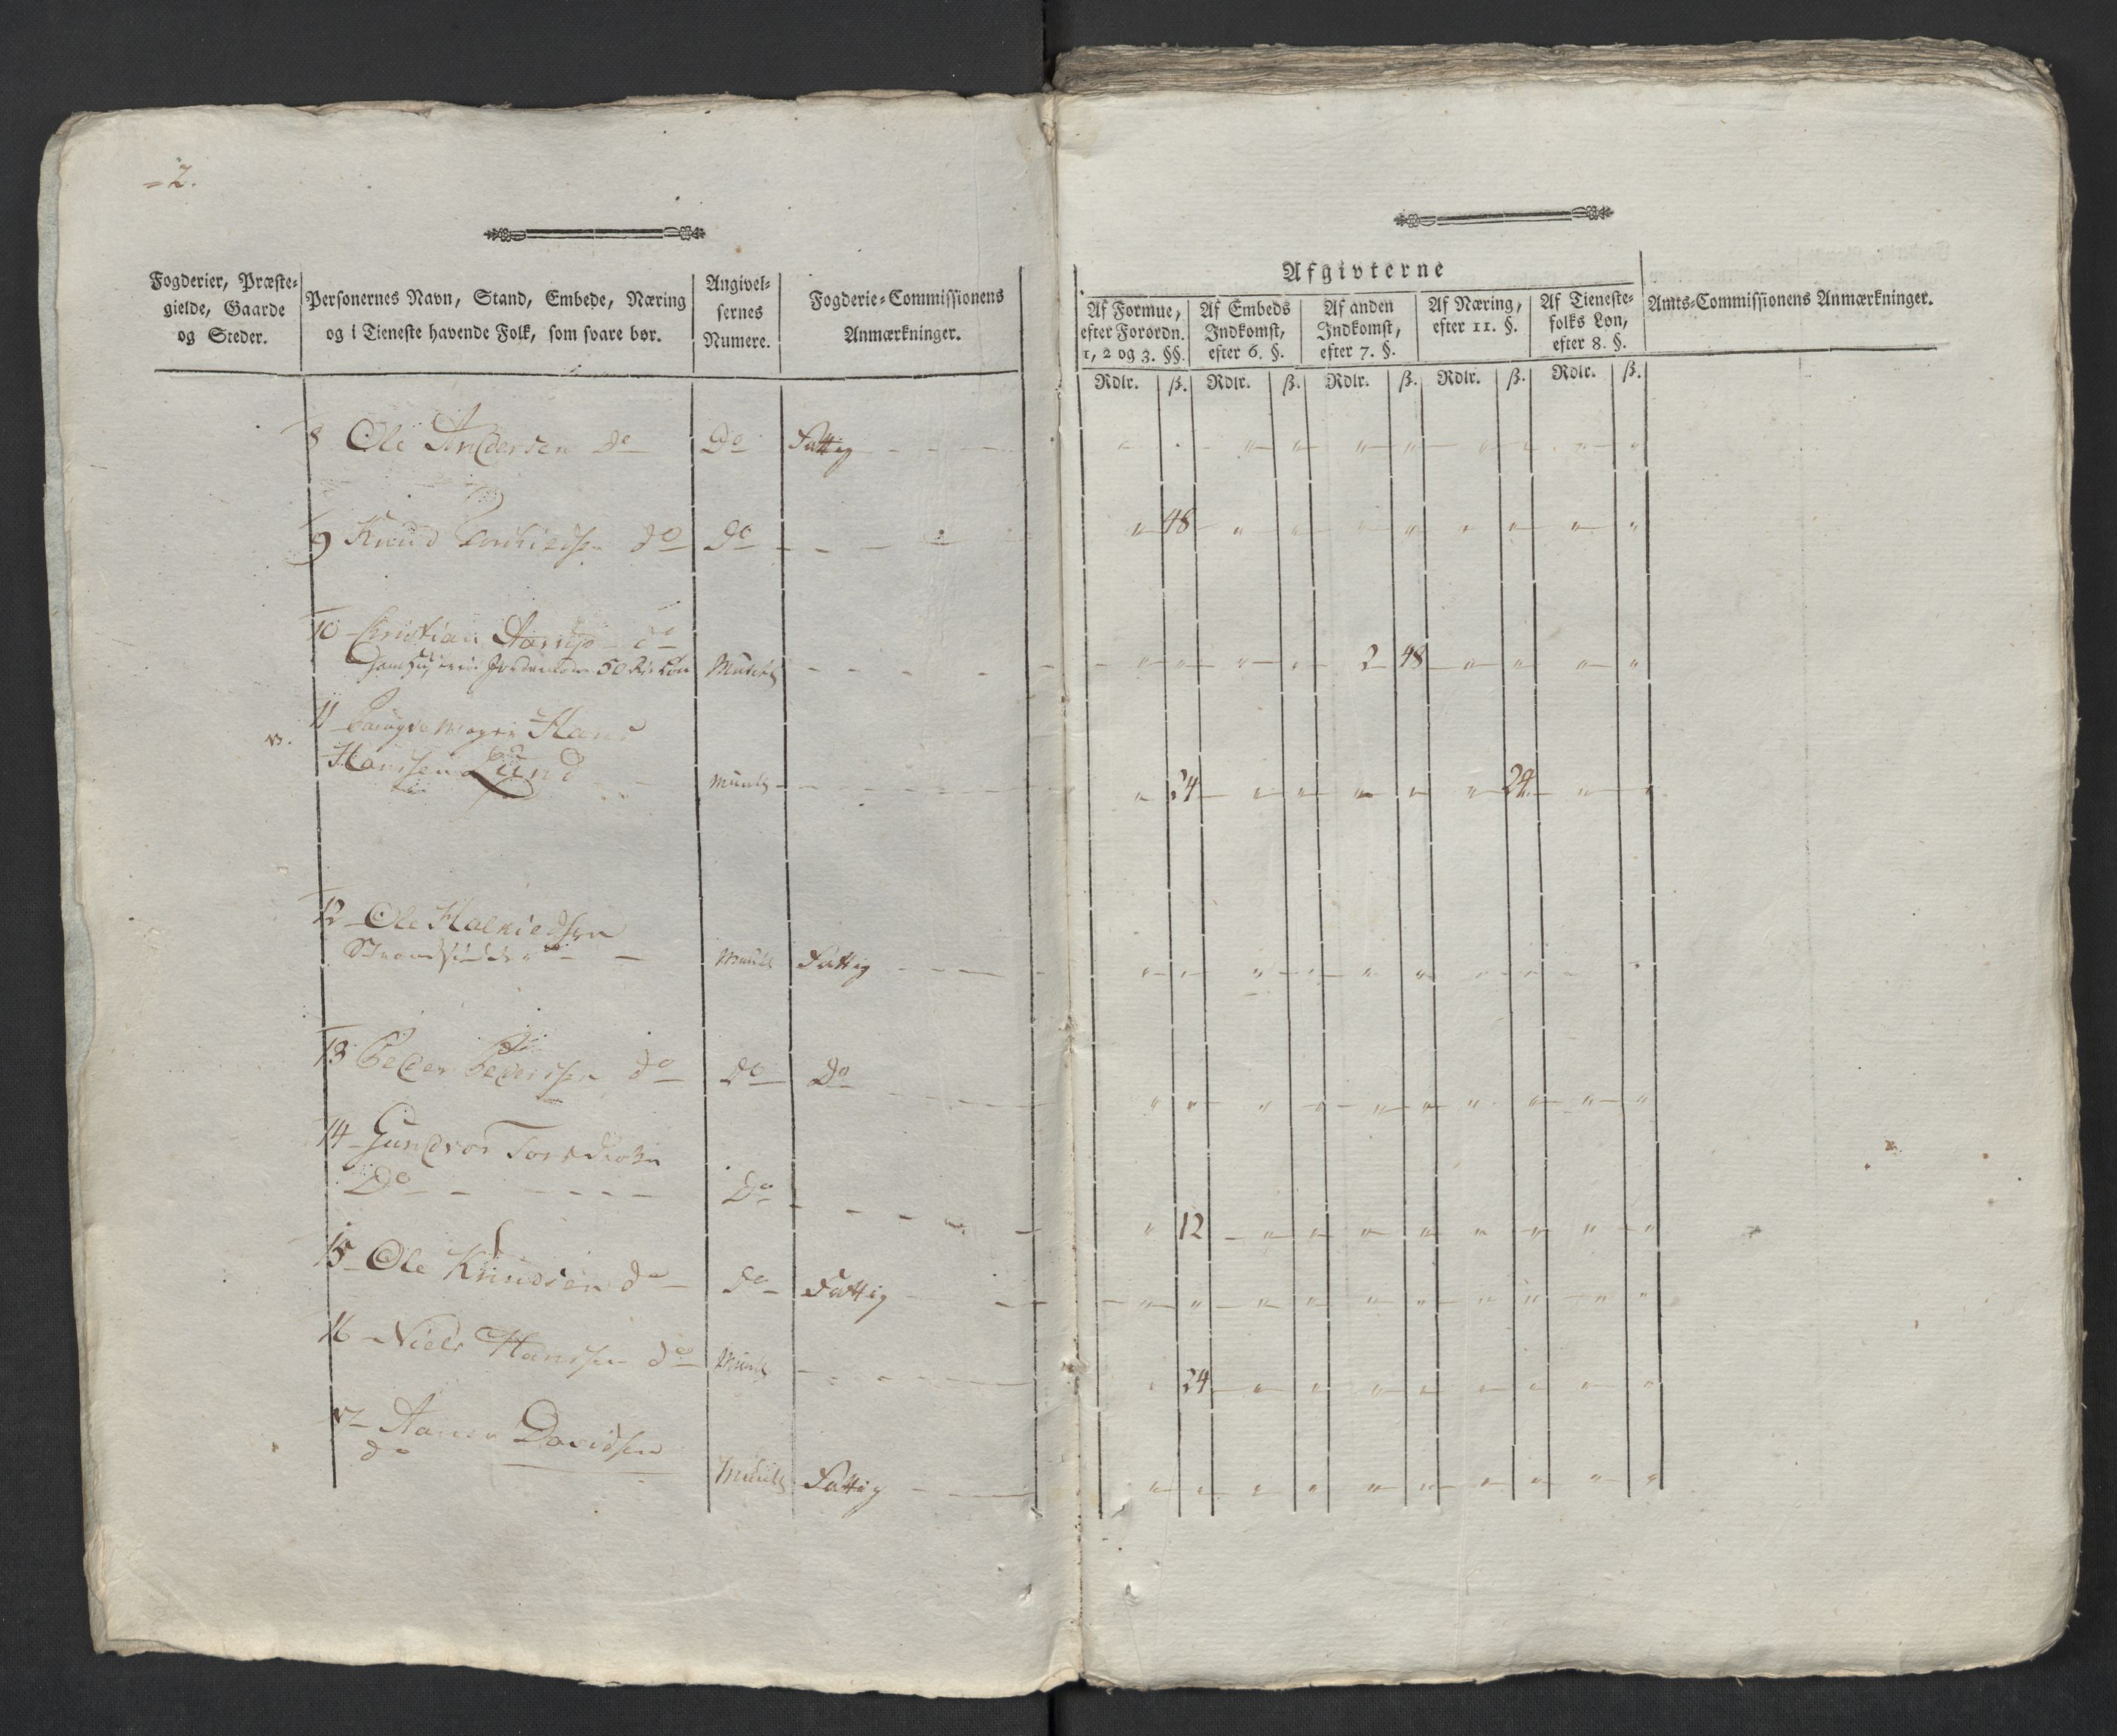 = 2.
Fogderier, Præste-
gielde, Gaarde
og Steder.
Personernes Navn, Stand, Embede, Næring
og i Tieneste havende Folk, som svare bør.
Angivel-
sernes
Numere.
Fogderie-Commissionens
Anmærkninger.
Afgivterne
Af Formue,
efter Forordn.
1, 2 og 3. §§.
Af Embeds
Indkomst,
efter 6. §.
Af anden
Indkomst,
efter 7. §.
Af Næring,
efter 11. §.
Af Tieneste-
folks Løn,
efter 8. §.
Amts-Commissionens Anmærkninger.
Rdlr. ß. Rdlr. ß. Rdlr. ß. Rdlr. ß. Rdlr. ß.
8 Ole Andersen do do Fattig
9 Knud do do 48
10 Christian Aarup do
50 Rdr Løn Mundtl 2 48
11 Hans
Hanssen Lund Mundtl 24 24
12 Ole
Strandsidder Mundtl Fattig
13 Peder Pedersen do do Do
14 Gundvor
Do Do 12
15 Ole Knudsen do do Fattig
16 Niels Hanssen do Mundtl 24
17 Davidsen
do Mundtl Fattig